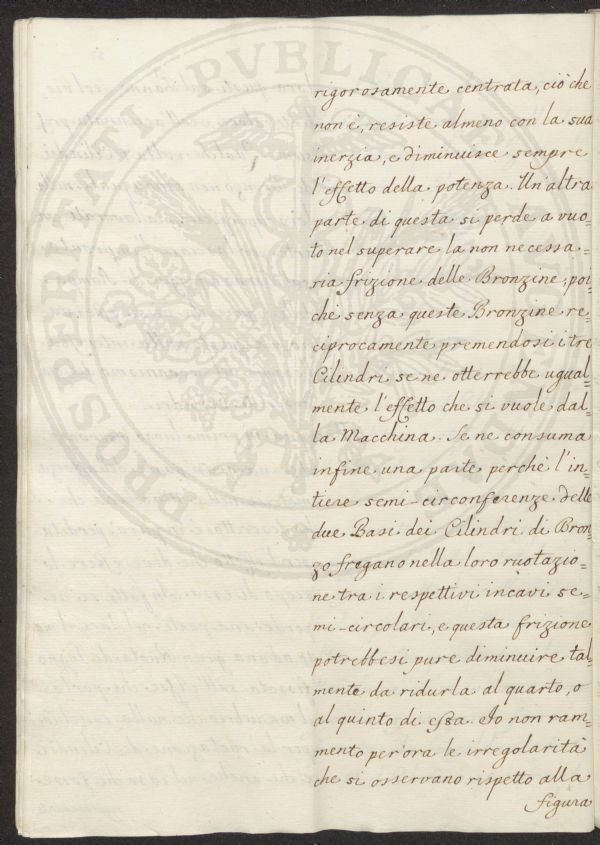 rigorosamente centrata, ciò che
non è, resiste almeno con la sua
inerzia, e diminuisce sempre
l'effetto della potenza. Un'altra
parte di questa si perde a vuo=
to nel superare la non necessa=
ria frizione delle Bronzine, poi=
chè senza queste Bronzine re=
ciprocamente premendosi i tre
Cilindri se ne otterrebbe ugual=
mente l'effetto che si vuole dal=
la Macchina. Se ne consuma
infine una parte perchè l'in=
tiere semi-circonferenze delle
due Basi dei Cilindri di Bron=
zo fregano nella loro ruotazio=
ne tra i respettivi incàvi se=
mi-circolari, e questa frizione
potrebbesi pure diminuire tal=
mente da ridurla al quarto, o
al quinto di essa. Io non ram=
mento per ora le irregolarità
che si osservano rispetto alla
figura
PROSPERITATI PVBLICAE